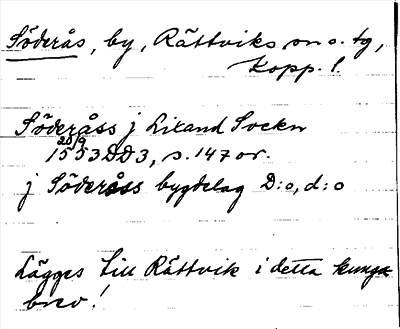 Söderås, by, Rättviks sn o. tg,
Kopp. l.
Söderåss j Lixand Sockn
20/9
1553 DD3, s. 147 or.
j Söderåss bygdelag D:o, d:o
Lägges till Rättvik i detta kunga
brev!